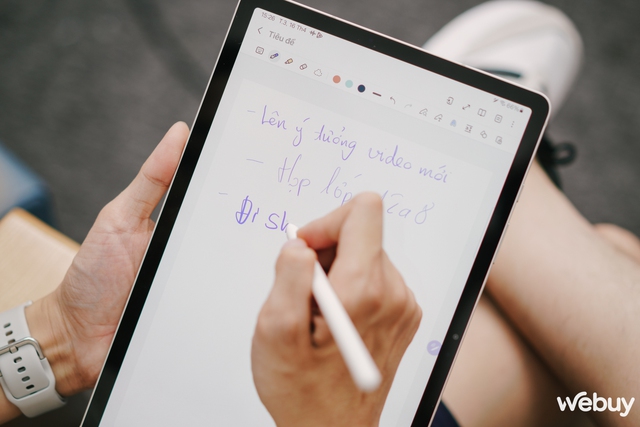 15:26 T.3, 16 Th4
Tiêu đề
- Lên ý tưởng video mới
- Họp lớp
- Đi sh
webuy